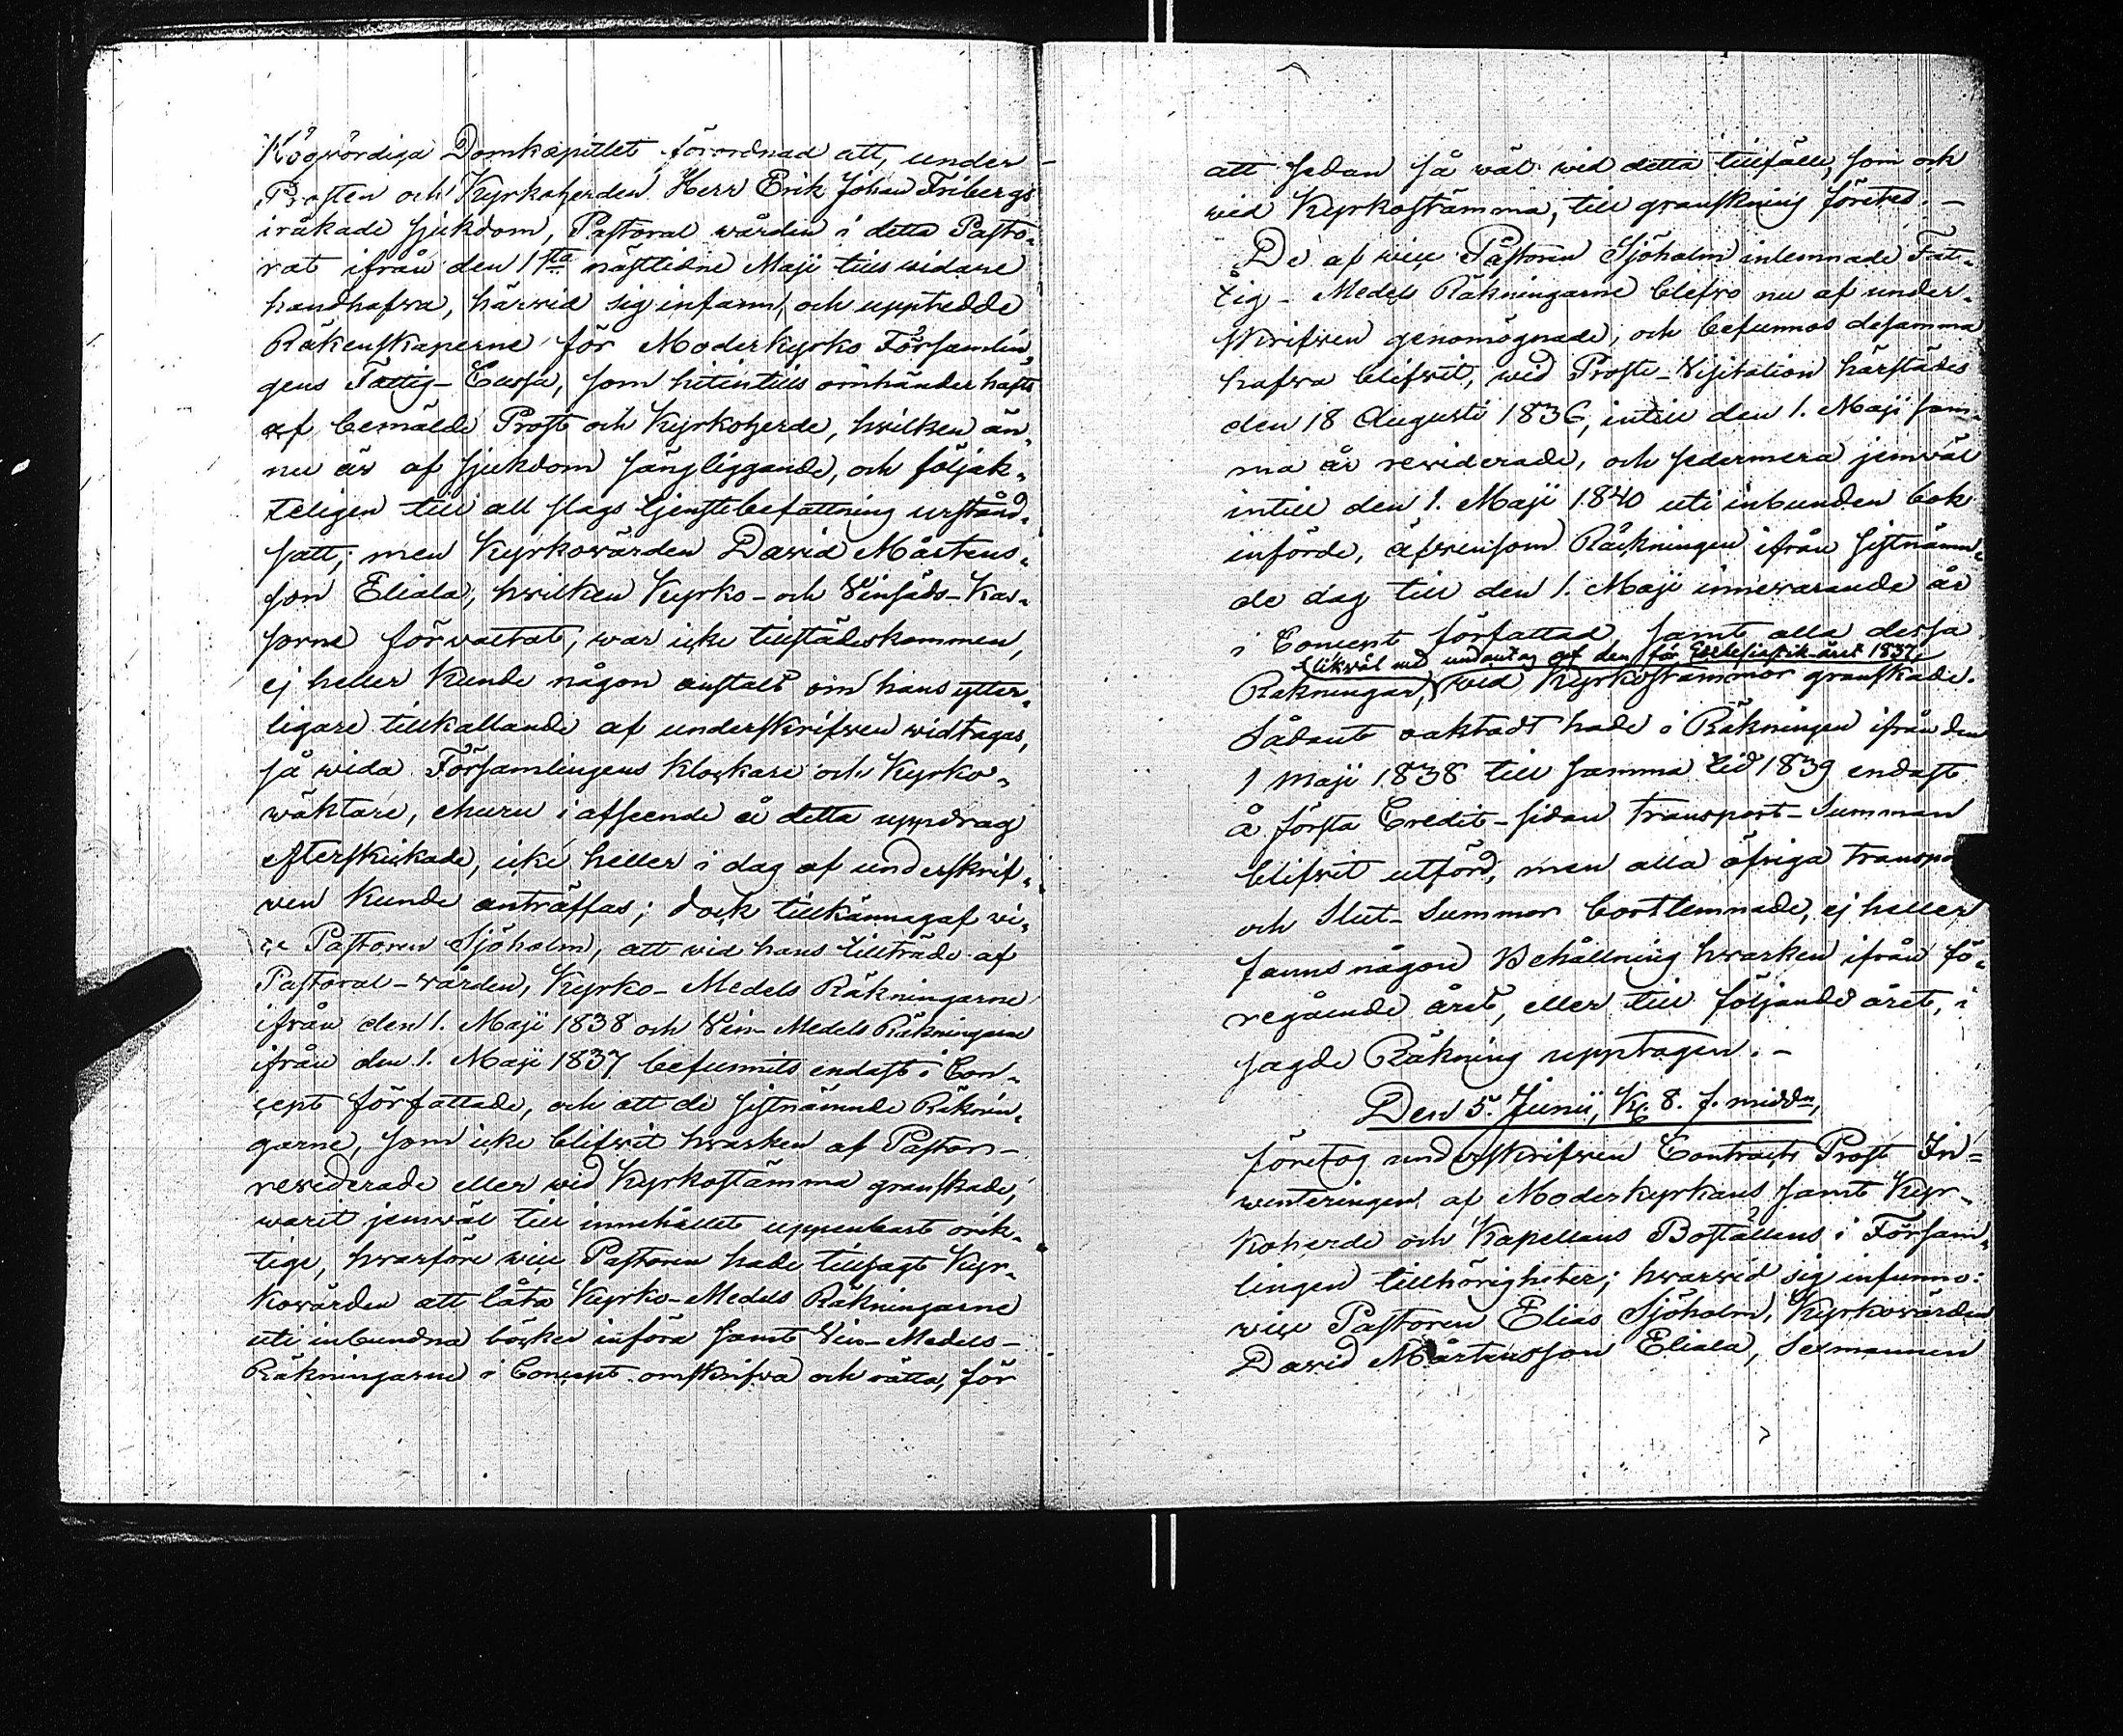 Högvördiga Domkapitlet förordnad att, under
Prosten och Kyrkoherden Herr Erik Johan Fribergs
iråkade sjukdom, Pastoral wården i detta Pasto-
rat ifrån den 1sta nästledne Maji tills widare
handhafwa, härwid sig infann, och upptedde
Räkenskaperne för Moderkyrko Församlin-
gens Fattig-Cassa, som hitintills omhänderhafts
af bemälde Prost och Kyrkoherde, hwilken än-
nu är af sjukdom sängliggande, och följak-
teligen till all slags tjenstebefattning urstånd-
satt; men Kyrkowärden David Mårtens-
son Eliala, hwilken Kyrko- och Vinsäds-Kas-
sorne förvaltat, war icke tillstädeskommen,
ej heller kunde någon anstalt om hans ytter-
ligare tillkallande af underskrifwen widtagas,
så wida Församlingens klockare och Kyrko-
wäktare, ehuru i afseende å detta uppdrag
efterskickade, icke heller i dag af underskrif-
ven kunde anträffas; dock tillkännagaf vi-
ce Pastoren Sjöholm, att vid hans tillträde af
Pastoral-vården, Kyrko-Medels Räkningarne
ifrån den 1. Maji 1838 och Vin-Medels Räkningarne
ifrån den 1. Maji 1837 befunnits endast i Con-
cept författade, och att de sistnämnde Räknin-
garne, som icke blifvit hwarken af Pastor
reviderade eller wid Kyrkostämma granskade,
warit jemwäl till innehållet uppenbart orik-
tige, hwarföre vice Pastoren hade tillsagt Kyr-
kowärden att låta Kyrko-Medels Räkningarne
uti inbundna böcker införa samt Vin-Medels-
Räkningarne i Concept omskrifwa och rätta, för
att sedan så väl wid detta tillfälle, som ock
wid Kyrkostämma, till granskning företes. -
De af vice Pastoren Sjöholm inlemnade Fat-
tig-Medels Räkningarne blefwo nu af under-
skrifwen genomögnade, och befunnos desamma
hafwa blifwit, wid Prosts-Visitation härstädes
den 18 Augusti 1836, intill den 1. Maji sam-
ma år reviderade, och sedermera jemväl
intill den 1. Maji 1840 uti inbunden bok
införde, äfwensom Räkningen ifrån sistnämn-
de dag till den 1. Maji innewarande år
i Concept författad, samt alla dessa
likwäl med undantag af den för Ecklesiastik-året 1837
Räkningar, wid Kyrkostämmor granskade.
Sådant oaktadt hade i Räkningen ifrån den
1 Maji 1838 till samma tid 1839 endast
å första Credit-sidan Transport-Summan
blifwit utförd, men alla öfriga
och Slut-Summor bortlemnade, ej heller
fanns någon Behållning hwarken ifrån fö-
regående året, eller till följande året, i
sagde Räkning upptagen. -
Den 5. Junii, Kl. 8. f. midd.,
företog underskrifwen Contracts Prost In-
wenteringen af Moderkyrkans samt Kyr-
koherde och Kapellans Boställens i Försam-
lingen tillhörigheter; hwarwid sig infunno:
vice Pastoren Elias Sjöholm, Kyrkowärden
David Mårtensson Eliala, Sexmannen